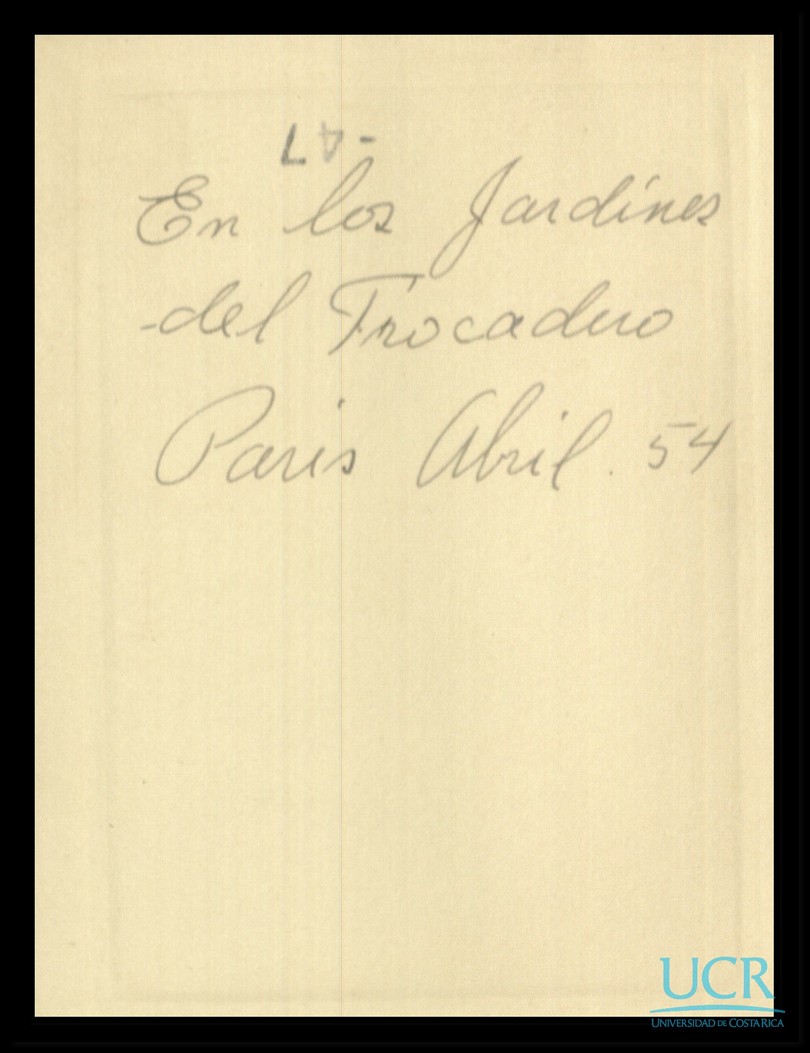 En los Jardines
del Trocadero
Paris Abril. 54
UCR
UNIVERSIDAD DE COSTA RICA